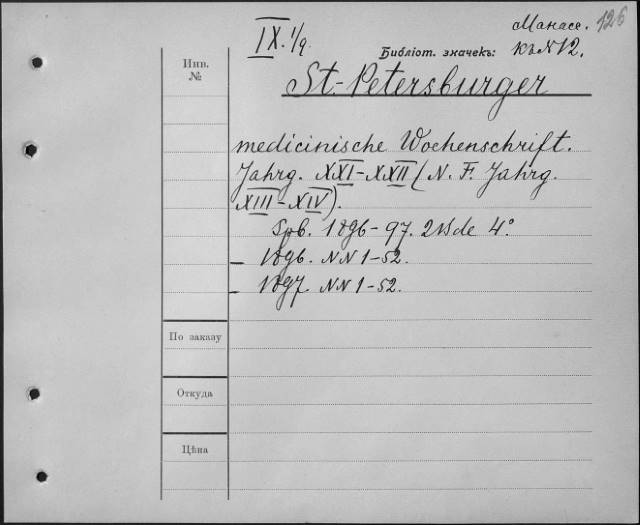 IX. 1/9.
Манасс. 126
Библіот. значекъ: къ N 12.
Инв.
№
St.-Petersburger
medicinische Wochenschrift.
Jahrg. XXI-XXII (N. F. Jahrg.
XIII-XIV).
Spb. 1896-97. 2 Bde 4º
— 1896. NN 1-52.
— 1897. NN 1-52.
По заказу
Откуда
Цѣна